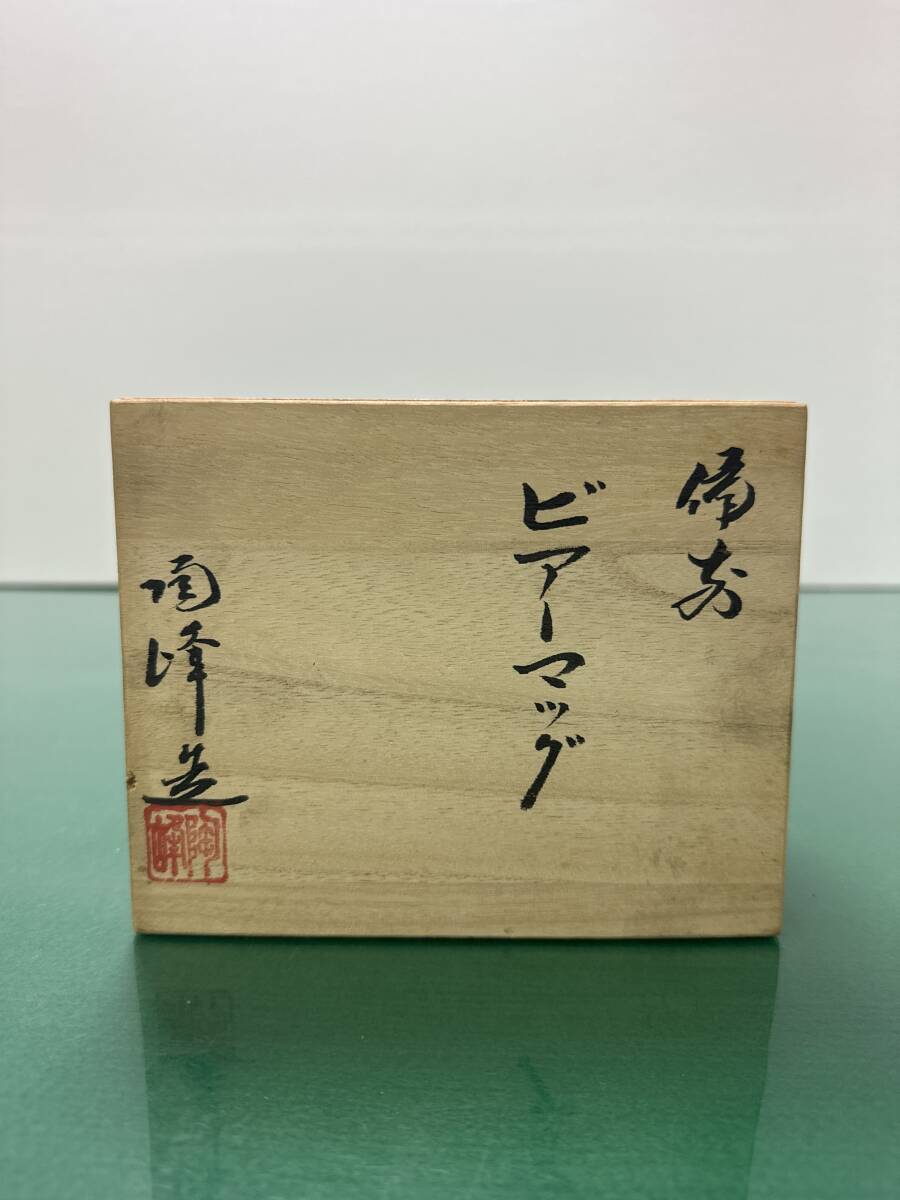 備前
ビアーマッグ
陶峰造
陶峰